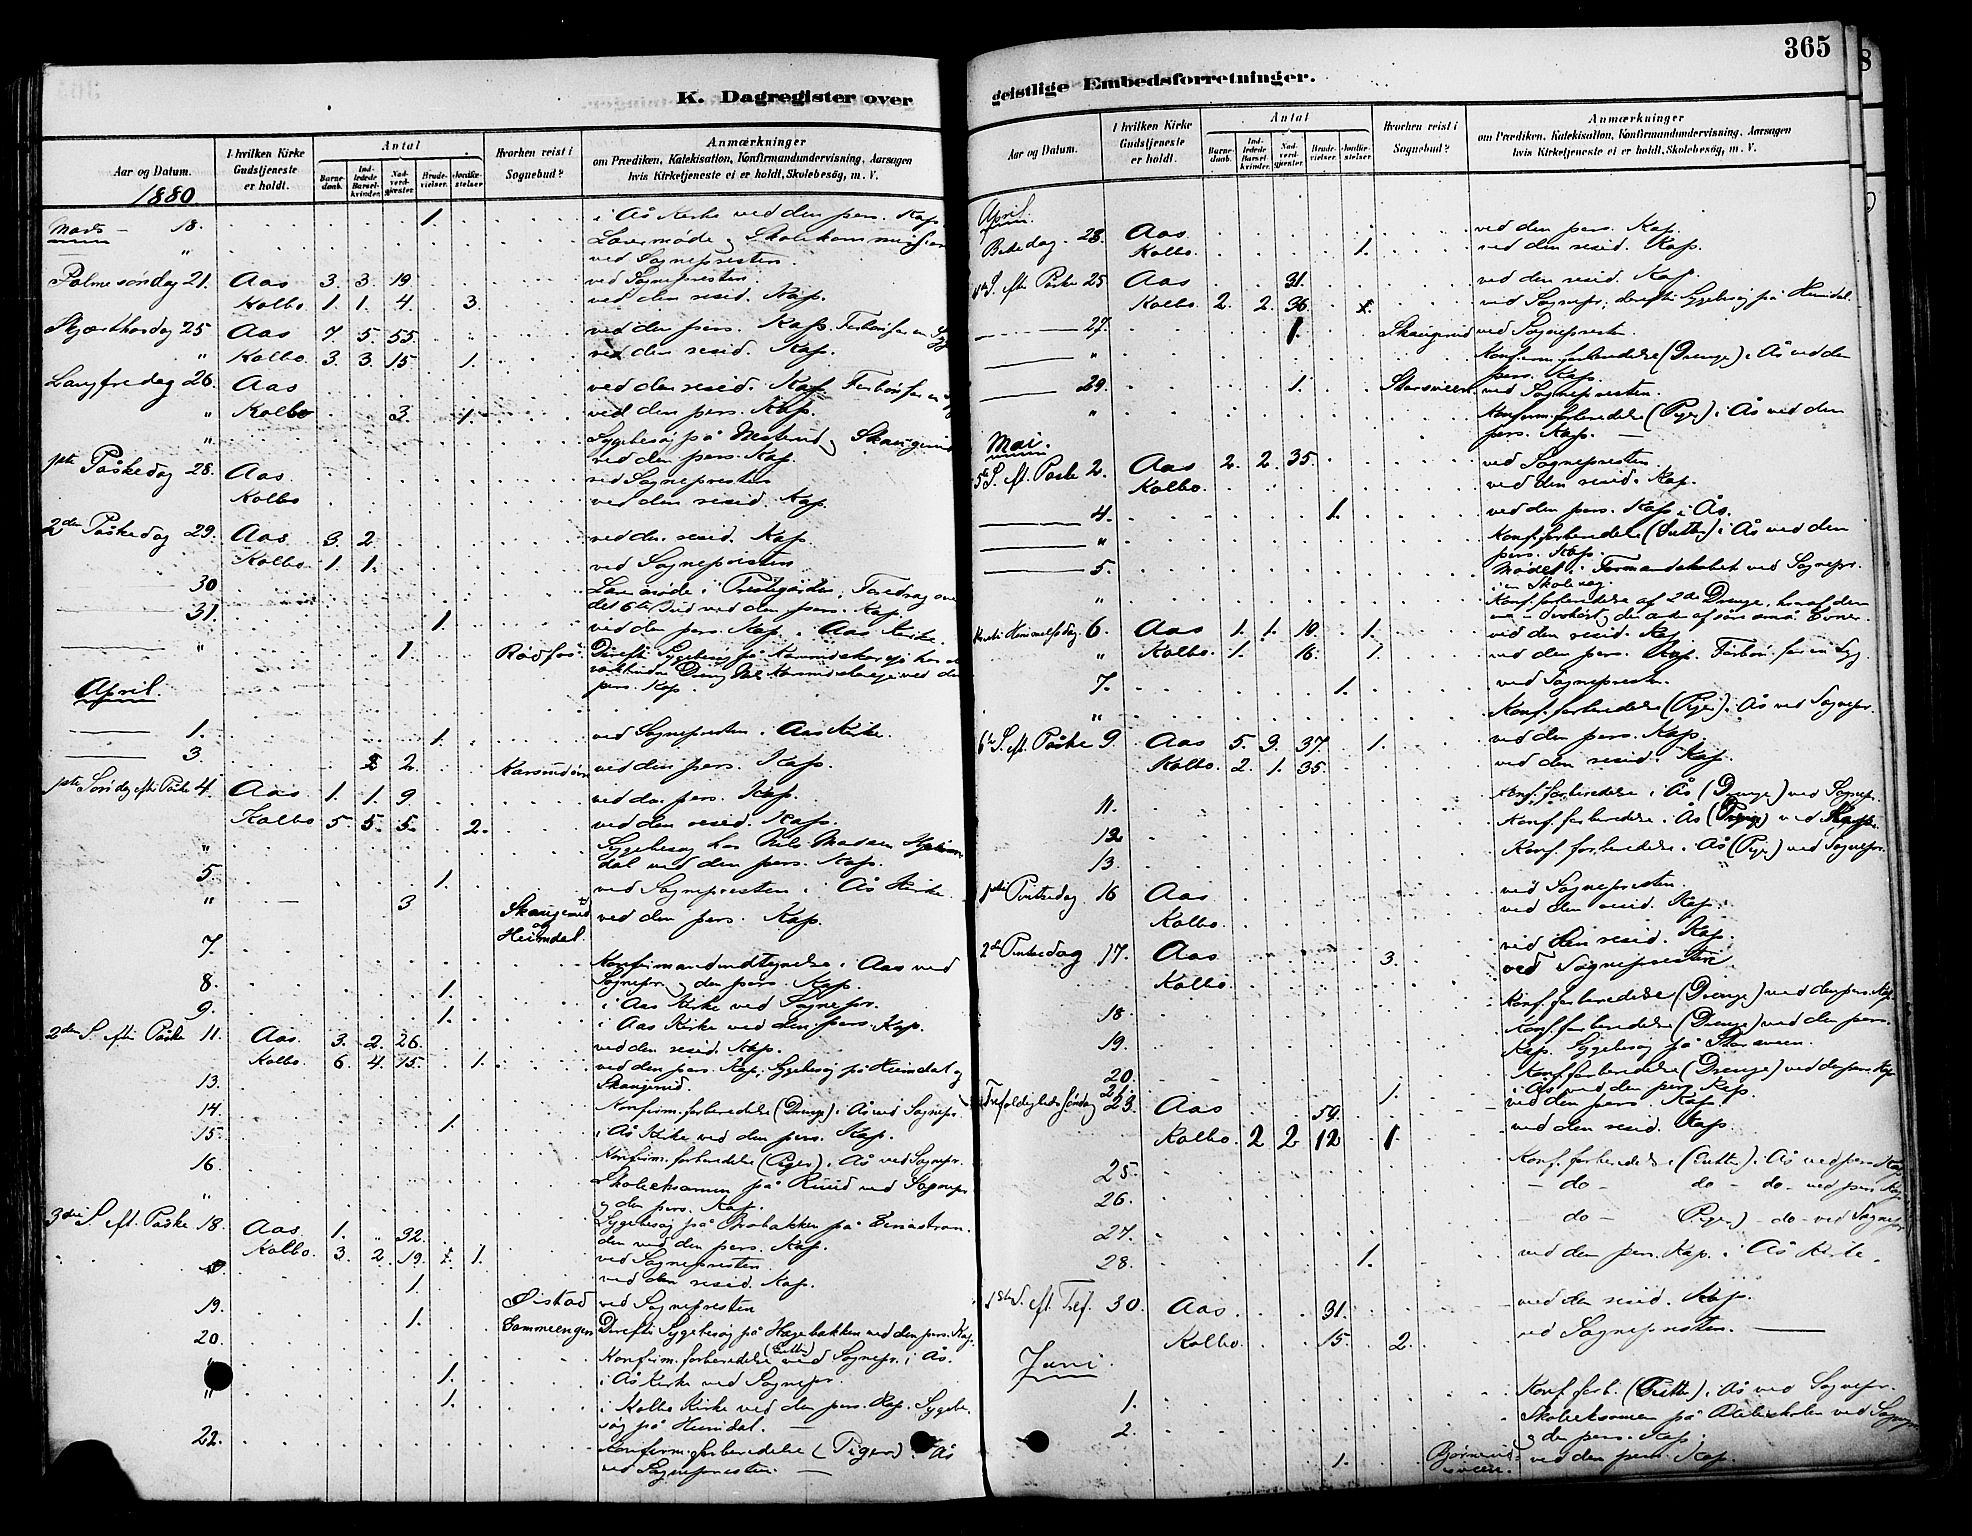 365
K. Dagregister over
Aar og Datum.
I hvilken Kirke Gudstjeneste er holdt.
Antal
Barne-daab.
Ind-ledede Barsel-kvinder.
Nad-verd-gjester.
Brude-vielser.
Jordfæ-stelser
Hvorhen reist i Sognebud?
Anmærkninger
om Prædiken, Katekisation, Konfirmandundervisning, Aarsagen
hvis Kirketjeneste ei er holdt, Skolebesög, m. V.
1880
Marts 18. 1. i Ås Kirke ved den pers. Kap.
" Lærermøde og Skolekommission
ved Sognepresten.
Palmesøndag 21. Aas 3. 3. 19 ved Sognepresten.
Kolbo 1. 1. 4. 3. ved den resid. Kap.
Skjærthorsdag 25 Aas 7. 5. 55. ved den pers. Kap. Forbøn for en Syg
" Kolbo. 3. 3. 15 1. ved den resid. Kap.
Langfredag 26. Aas ved den resid. Kap. Forbøn for en
" Kolbo 3. 1. ved den pers. Kap.
" Sygebesøg på og Skaugerud
ved den pers. Kap.
1ste Påskedag 28. Aas ved Sognepresten
Kolbo ved den resid. Kap.
2den Påskedag 29. Aas 3. 2. ved den resid. Kap.
Kolbo. 1. 1. ved Sognepresten
30 Lærermøde i Prestegården, Foredrag over
det 6te Bud ved den pers. Kap
31. 1. ved den pers. Kap. i Aas Kirke.
" 1. Rødfos Derefter Sygebesøg på
pers. Kap.
April.
1. 1. ved Sognepresten i Aas Kirke.
3. 2. ved den pers. Kap.
1ste Søndag efter Påske 4. Aas 1. 1. 9. ved den pers. Kap.
Kolbo 5. 5. 5. 2. ved den resid. Kap.
" Sygebesøg hos Nils Madsen
dal ved den pers. Kap.
5. 1. ved Sognepresten i Ås Kirke.
" 3 Skaugerud og Heimdal. ved den pers. Kap.
7. Konfirmandudtegnelse i Aas ved
Sognepr. og den pers. Kap.
8. 1. i Aas Kirke ved Sognepr.
9. 1. i Aas Kirke ved den pers. Kap.
2den S. efter Påske 11. Aas. 3. 2. 26. ved den resid. Kap.
Kolbo. 6. 4. 15. 1. ved den pers. Kap; Sygebesøg på Heimdal og
Skaugerud.
13. Konfirm. forberedelse (Drenge) i Ås ved Sognepr.
14. 1. i Ås Kirke ved den pers. Kap.
15. Konfirm. forberedelse (Piger) i Ås ved Sognepr.
16. Skoleeksamen på Ruud ved Sognepr.
og den pers. Kap.
" Sygebesøg på Brobakken på Einastran
den ved den pers. Kap.
3die S. eft. Påske 18. Aas 1. " 32. ved Sognepresten
Kolbo. 3. 2. 19. 1. ved den resid. Kap.
19. 1. Øistad ved Sognepresten
20. 1. Derefter Sygebesøg på Hagebakken ved den pers. Kap.
Konfirm. forberedelse (Gutter) ved Sognepr. i Ås.
" 1. i Ås Kirke ved Sognepr.
" 1. i Kolbo Kirke ved den pers. Kap. Sygebe-
søg på Heimdal.
22. Konfirm. forberedelse (Piger) i Ås
ved Sognepresten.
geistlige Embedsforretninger.
Aar og Datum.
I hvilken Kirke Gudstjeneste er holdt.
Antal
Barne-daab.
Ind-ledede Barsel-kvinder.
Nad-verd-gjester.
Brude-vielser.
Jordfæ-stelser
Hvorhen reist i Sognebud?
Anmærkninger
om Prædiken, Katekisation, Konfirmandundervisning, Aarsagen
hvis Kirketjeneste ei er holdt, Skolebesög, m. V.
April.
Bededag 23. Aas ved den pers. Kap.
Kolbo. 1. ved den resid. Kap.
4de S. efter Påske 25 Aas 31. ved den resid. Kap.
Kolbo 2. 2. 36. ved Sognepr; derefter Sygebesøg på Heimdal
27. 1. Skaugerud ved Sognepresten
" Konfirm. forberedelse (Drenge) i Ås ved den
pers. Kap.
29. 1. Storsveen ved Sognepresten.
" Konfirm. forberedelse (Piger) i Ås ved den
pers. Kap.
Mai.
5te S. eft. Påske 2. Aas 2. 2. 35. ved Sognepresten
Kolbo. ved den resid. Kap.
4. 1. ved den pers. Kap i Ås.
" Konf. forberedelse (Gutter) i Ås ved den
pers. Kap.
5. Møde i Formandskabet ved Sognepr.
i en Skolesag.
" Konf. forberedelse af 2de Drenge, hvoraf den
Kristi Himmelfsdag 6. Aas 1. 1. 10. 1. ved den resid. Kap
" Kolbo. 1. 16. 1. ved den pers. Kap. Forbøn for en Syg.
7. 1. ved Sognepresten.
" Konf. forberedelse (Piger) i Ås ved Sognepr.
6te S. eft. Påske 9. Aas 5. 3. 37. 1. ved den pers. Kap.
Kolbo. 2. 1. 35. ved den resid. Kap.
11. Konf. forberedelse i Ås (Drenge) ved Sognepr.
12 Konf. forberedelse i Ås (Drenge) ved
13. Konf. forberedelse i Ås (Piger) ved Sognepr.
1ste Pintsedag 16 Aas ved Sognepresten
Kolbo. ved den resid. Kap.
2den Pintsedag 17. Aas 3. ved den resid. Kap.
Kolbo. ved Sognepresten
18. Konf. forberedelse (Drenge) ved den pers. Kap.
19. Konf. forberedelse (Drenge) ved den pers.
Kap. Sygebesøg på Storsveen.
20. Konf. forberedelse (Drenge) ved den pers. Kap
i Ås ved den pers. Kap.
21. 1.
Trefoldigheds Søndag 23. Aas 59. ved den pers. Kap.
Kolbo. 2 2 12 1. ved den resid. Kap.
25. Konf. forberedelse (Gutter) i Ås ved pers. Kap
26. – do – do – do – ved pers. Kap
27. – do – Piger) – do – ved Sognepr.
28. 1. ved den pers. Kap. i Ås Kirke.
1ste S. eft. Tref. 30. Aas 31. ved den resid. Kap.
Kolbo. 15. 2. ved Sognepresten.
Juni.
1. Konf. forb. (Gutter) i Ås ved Sognepr.
2. Skoleeksamen på ved Sognepr
og den pers. Kap.
1. Bjørnerudsveen. ved den pers. Kap.